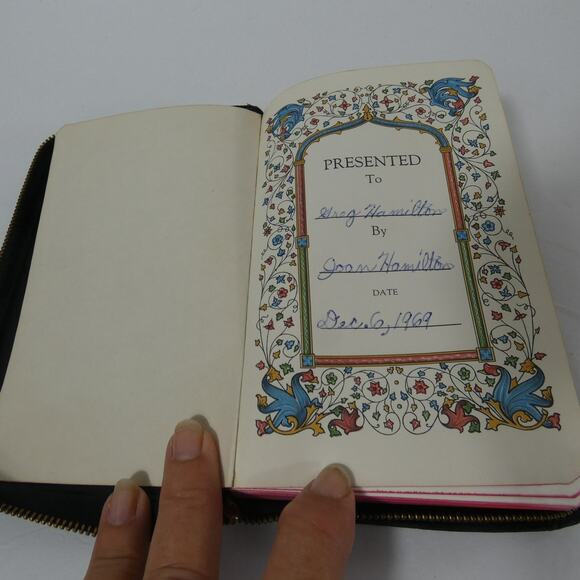 PRESENTED
To
Greg Hamilton
By
Joan Hamilton
DATE
Dec. 6, 1969